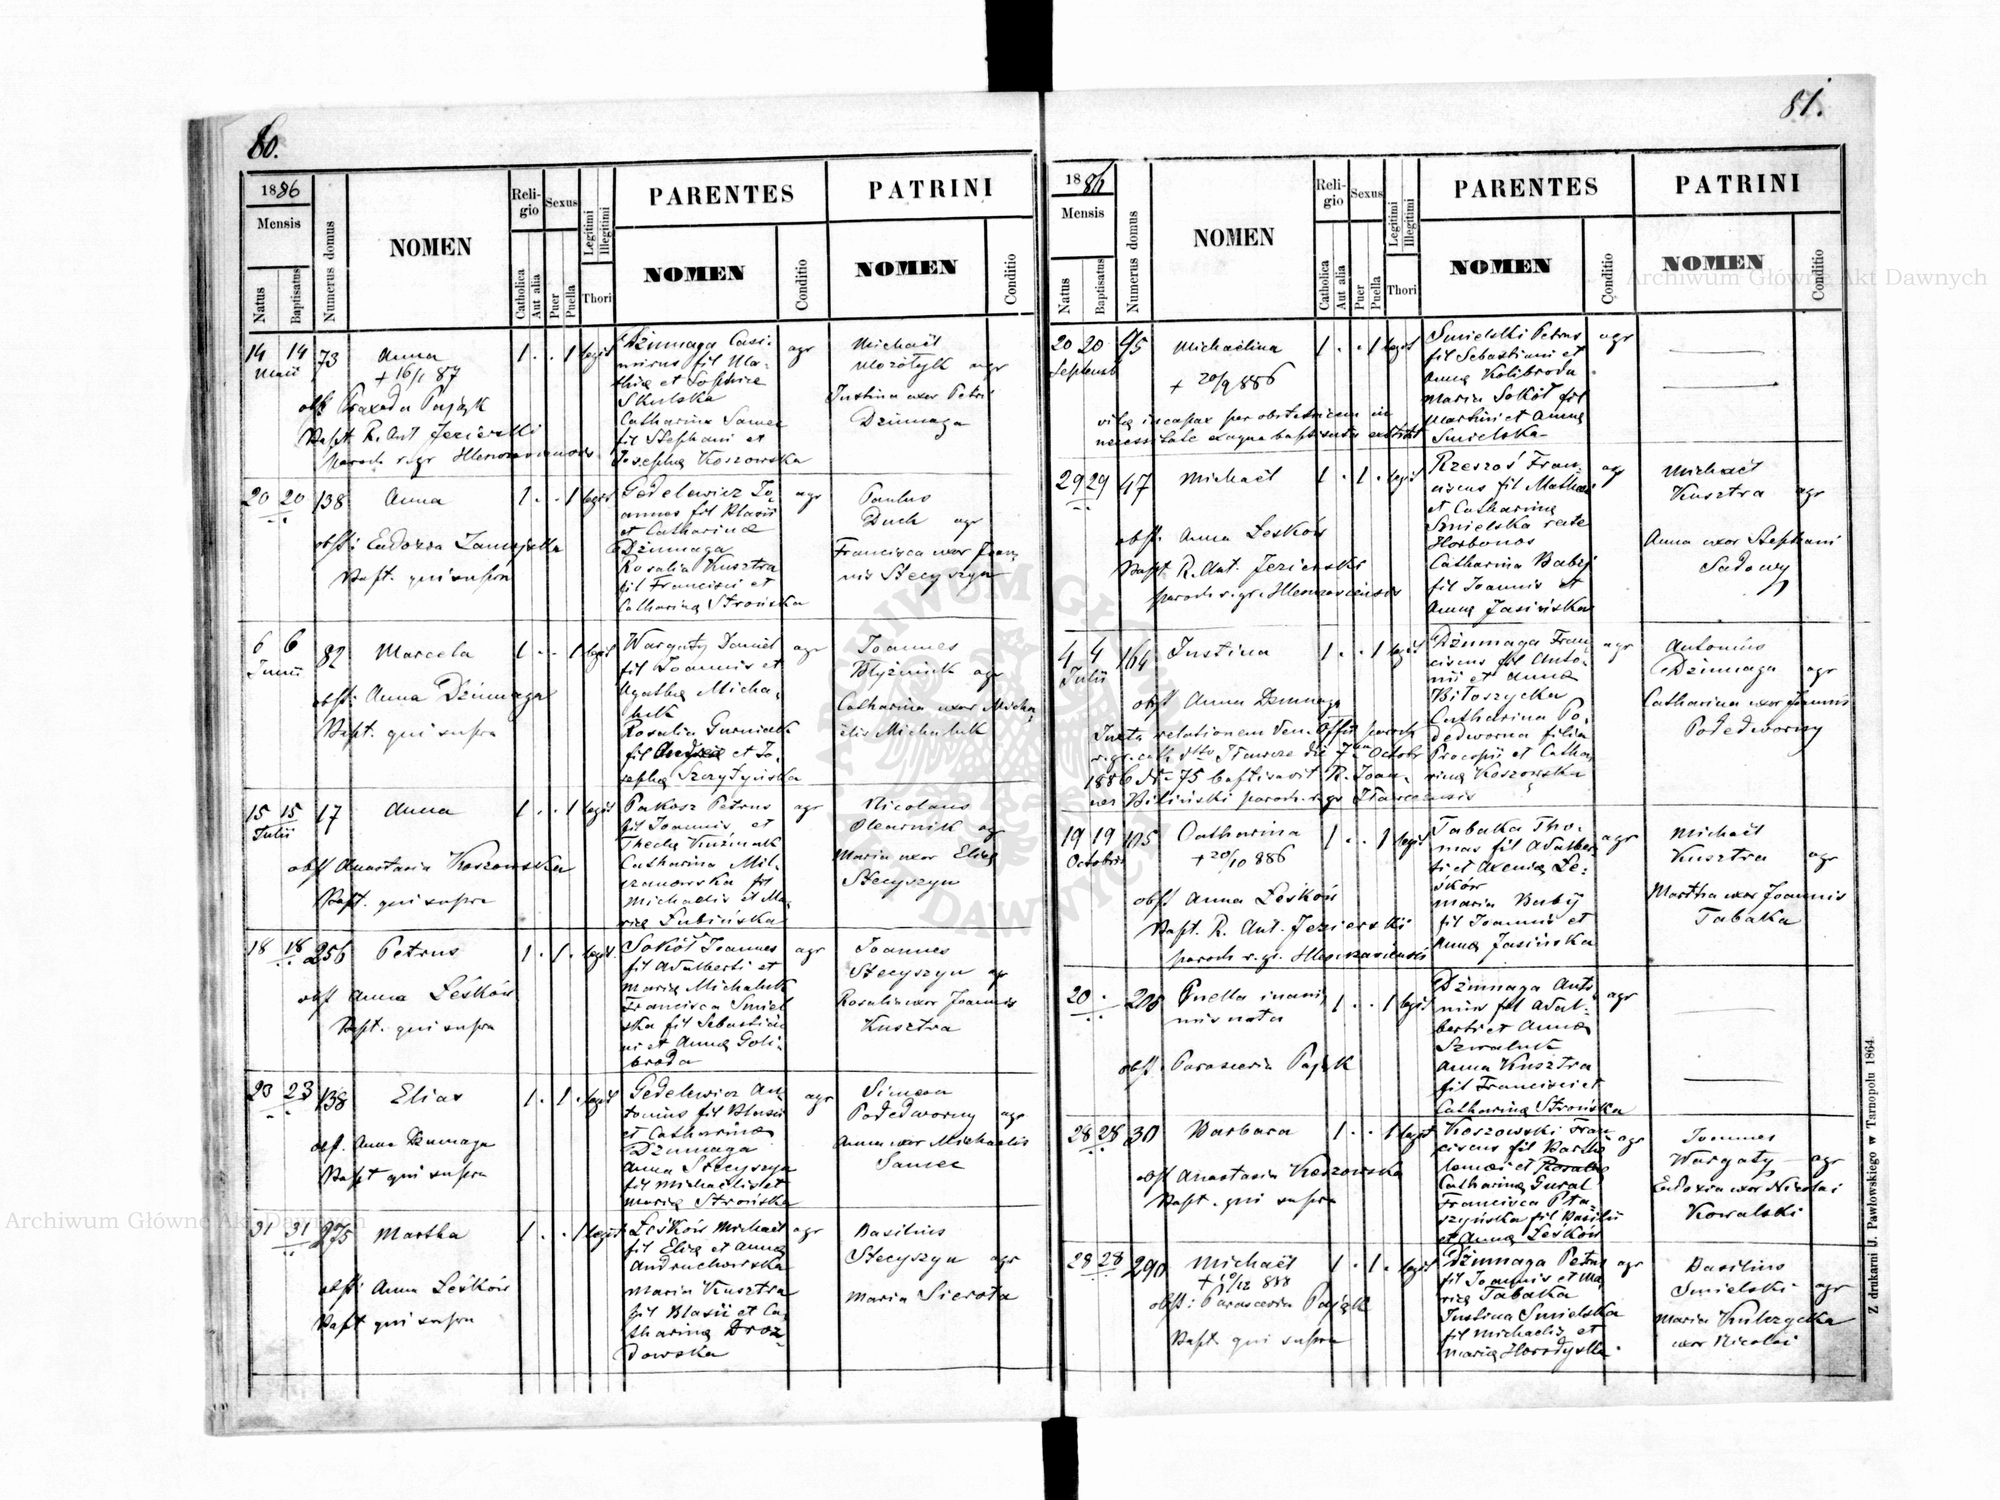 80.
1886
Mensis
Natus
Baptisatus
Numerus domus
NOMEN
Religio
Catholica
Aut alia
Sexus
Puer
Puella
Legitimi
Illegitimi
Thori
PARENTES
NOMEN
Conditio
PATRINI
NOMEN
Conditio
14 14 73 Anna 1 . . 1 legit
Maii
+ 16/1 87
obst Praxeda Pająk
Bapt. R. Ant Jezierski
paroch r. gr
Dżumaga Casi-
mirus fil Ma-
thiæ et Sophiæ
Skulska
Catharina Samec
fil Stephani et
Josephæ Koszowska
agr
Michaël
agr
Justina uxor Petri
Dżumaga
20 20 138 Anna 1 . . 1 legit
obst: Eudoxia Zamojska
Bapt. qui supra
Gedelewicz Jo-
annes fil Blasii
et Catharinæ
Dżumaga
Rosalia Kusztra
fil Francisci et
Catharinæ Strońska
agr
Paulus
Duch agr
Francisca uxor Joan-
nis Stecyszyn
6 6 82 Marcela 1 . . 1 legit
Junii
obst: Anna Dżumaga
Bapt. qui supra
Wargaty Daniel
fil Joannis et
Agathæ Micha-
luk
Rosalia Gurniak
fil et Jo-
sephæ
agr
Joannes
Błyźniuk agr
Catharina uxor Micha-
ëlis Michaluk
15 15 17 Anna 1 . . 1 legit
Julii
obst Anastasia Koszowska
Bapt. qui supra
Pakosz Petrus
fil Joannis et
Theclæ Kuźniak
Catharina Mil-
czanowska fil
Michaelis et Ma-
riæ Lubińska
agr
Nicolaus
Olearnik agr
Maria uxor Eliæ
Stecyszyn
18 18 256 Petrus 1 . 1 . legit
obst Anna Leśków
Bapt. qui supra
Sokół Joannes
fil Adalberti et
Mariæ Michaluk
Francisca Smiel
ska fil Sebastia-
ni et Annæ Goli-
broda
agr
Joannes
Stecyszyn agr
Rosalia uxor Joannis
Kusztra
23 23 138 Elias 1 . 1 . legit
obst. Anna Dżumaga
Bapt qui supra
Gedelewicz An-
tonius fil Blasii
et Catharinæ
Dżumaga
Anna Stecyszyn
fil Michaëlis et
Mariæ Strońska
agr
Simeon
Podedworny agr
Anna uxor Michaelis
Samec
31 31 275 Martha 1 . . 1 legit
obst: Anna Leśków
Bapt qui supra
Leśków Michaël
fil Eliæ et Annæ
Andruchowska
Maria Kusztra
fil Blasii et Ca-
tharinæ Droz-
dowska
agr
Basilius
Stecyszyn agr
Maria Sierota
81.
1886
Mensis
Natus
Baptisatus
Numerus domus
NOMEN
Religio
Catholica
Aut alia
Sexus
Puer
Puella
Legitimi
Illegitimi
Thori
PARENTES
NOMEN
Conditio
PATRINI
NOMEN
Conditio
20 20 95 Michaëlina 1 . . 1 legit
Septemb
+ 20/9 886
vitæ incapax per obstetricem in
necessitate ex aqua baptisata extitit
Smielski Petrus
fil Sebastiani et
Annæ Kolibroda
Maria Sokół fil
Martini et Annæ
Smielska
agr
29 29 47 Michaël 1 . 1 . legit
obst: Anna Leśków
Bapt R. Ant. Jezierski
paroch r. gr.
Rzeszoś Fran-
ciscus fil Mathæi
et Catharinæ
Smielska recte
Horbonos
Catharina Babij
fil Joannis et
Annæ Jasińska
agr
Michaël
Kusztra agr
Anna uxor Stephani
Sadowy
4 4 164 Justina 1 . . 1 legit
Julii
obst Anna Dżumaga
Juxta relationem Ven. Offii paroch
r. gr. cath dtto die 7bris Octobr
1886 No 75 baptisavit R. Joan-
nes Biliński paroch. r. gr
Dżumaga Fran-
ciscus fil Anto-
nii et Annæ
Biłoszycka
Catharina Po-
dedworna filia
Procopii et Catha-
rinæ Koszowska
agr
Antonius
Dżumaga agr
Catharina uxor Joannis
Podedworny
19 19 105 Catharina 1 . . 1 legit
Octobris
+ 20/10 886
obst Anna Leśków
Bapt. R. Ant. Jezierski
paroch r. gr.
Tabaka Tho-
mas fil Adalber-
ti et Axeniæ Le-
śków
Maria Babij
fil Joannis et
Annæ Jasińska
agr
Michaël
Kusztra agr
Martha uxor Joannis
Tabaka
20 . 205 Puella inani- 1 . . 1 legit
mis nata
obst: Parascevia Pająk
Dżumaga Anto-
nius fil Adal-
berti et Annæ
Szwaluk
Anna Kusztra
fil Francisci et
Catharinæ Strońska
agr
28 28 30 Barbara 1 . . 1 legit
obst Anastasia Koszowska
Bapt. qui supra
Koszowski Fran-
ciscus fil Bartho
lomæi et Rosaliæ
Catharinæ Gural
Francisca Pta-
szyńska fil Basilii
et Annæ Leśków
agr
Joannes
Wargaty agr
Eudoxia uxor Nicolai
Kowalski
28 28 290 Michaël 1 . 1 . legit
+ 10/12 888
obst: Parascevia Pająk
Bapt. qui supra
Dżumaga Petrus
fil Joannis et Ma-
riæ Tabaka
Justina Smielska
fil Michaëlis et
Mariæ Horodyska
agr
Basilius
Smielski agr
Maria Kulczycka
uxor Nicolai
Z drukarni J. Pawłowskiego w Tarnopolu 1864.
Archiwum Główne Akt Dawnych
Archiwum Główne Akt Dawnych
ARCHIWUM GŁÓWNE AKT DAWNYCH